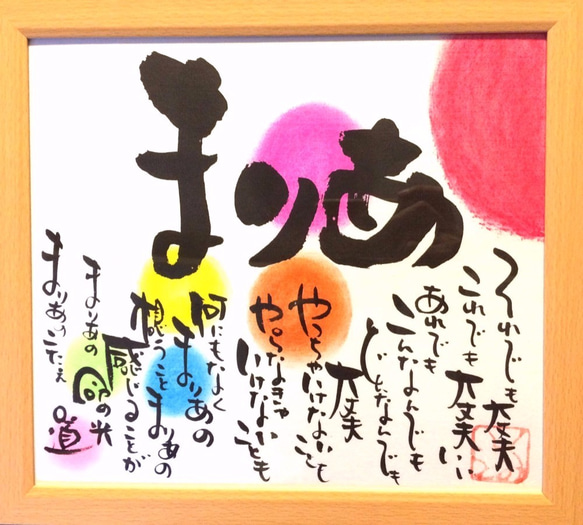 まりあ
それでも大丈夫
これでも大丈夫いい
あれでも
こんなんでも
どんなんでも
大丈夫
やっちゃいけないことも
やらなきゃ
いけないことも
何にもなく
まりあの
想うことまりあの
感じることが
まりあの命の光
まりあのこたえ
道